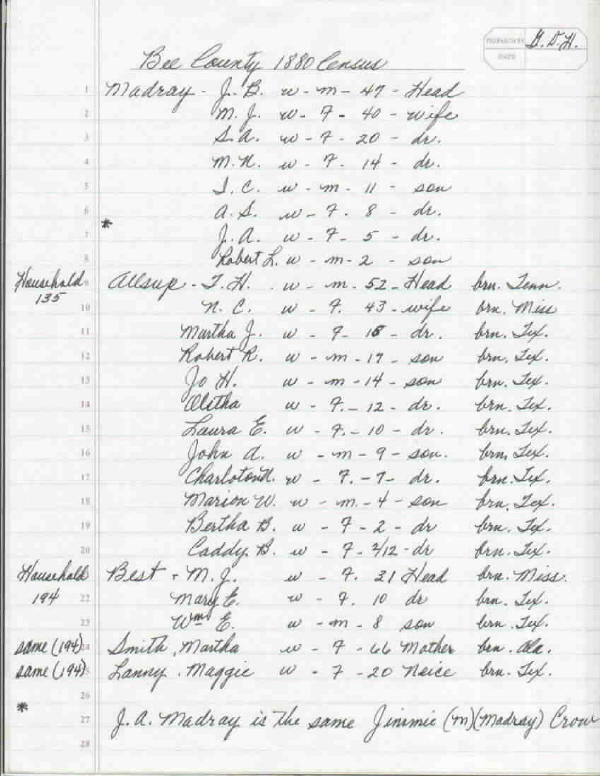 PREPARED BY G.D.H.
DATE
Bee County 1880 Census
1 Madray - J. B. w - m - 47 - Head
2 M. J. w - F - 40 - wife
3 S. A. w - F - 20 - dr.
4 M. N. w - F. 14 - dr.
5 I. C. w - m - 11 - son
6 A. S. w - F. 8 - dr.
* 7 J. A. w - F - 5 - dr.
8 Robert L. w - m - 2 - son
Household 135 9 Allsup - T. H. w - m - 52 - Head brn. Tenn.
10 N. C. w - F. 43 - wife brn. Miss
11 Martha J. w - F - 18 - dr. brn. Tex.
12 Robert R. w - m - 17 - son brn. Tex.
13 Jo H. w - m - 14 - son brn. Tex.
14 w - F. - 12 - dr. brn. Tex.
15 Laura E. w - F. - 10 - dr. brn. Tex.
16 John A. w - m - 9 - son. brn. Tex.
17 w - F. - 7 - dr. brn. Tex.
18 Marion W. w - m. - 4 - son brn. Tex.
19 Bertha B. w - F - 2 - dr brn. Tex.
20 Caddy B. w - F - 2/12 - dr brn. Tex.
Household 194 Best - M. J. w - F. 31 Head brn. Miss.
22 Mary E. w - F. 10 dr brn. Tex.
23 Wm E. w - m - 8 son brn. Tex.
same (194) 24 Smith, Martha w - F - 66 Mother brn. Ala.
same (194) 25 Lanny, Maggie w - F - 20 Neice brn. Tex.
26
* 27 J. A. Madray is the same Jimmie (m) (Madray) Crow
28